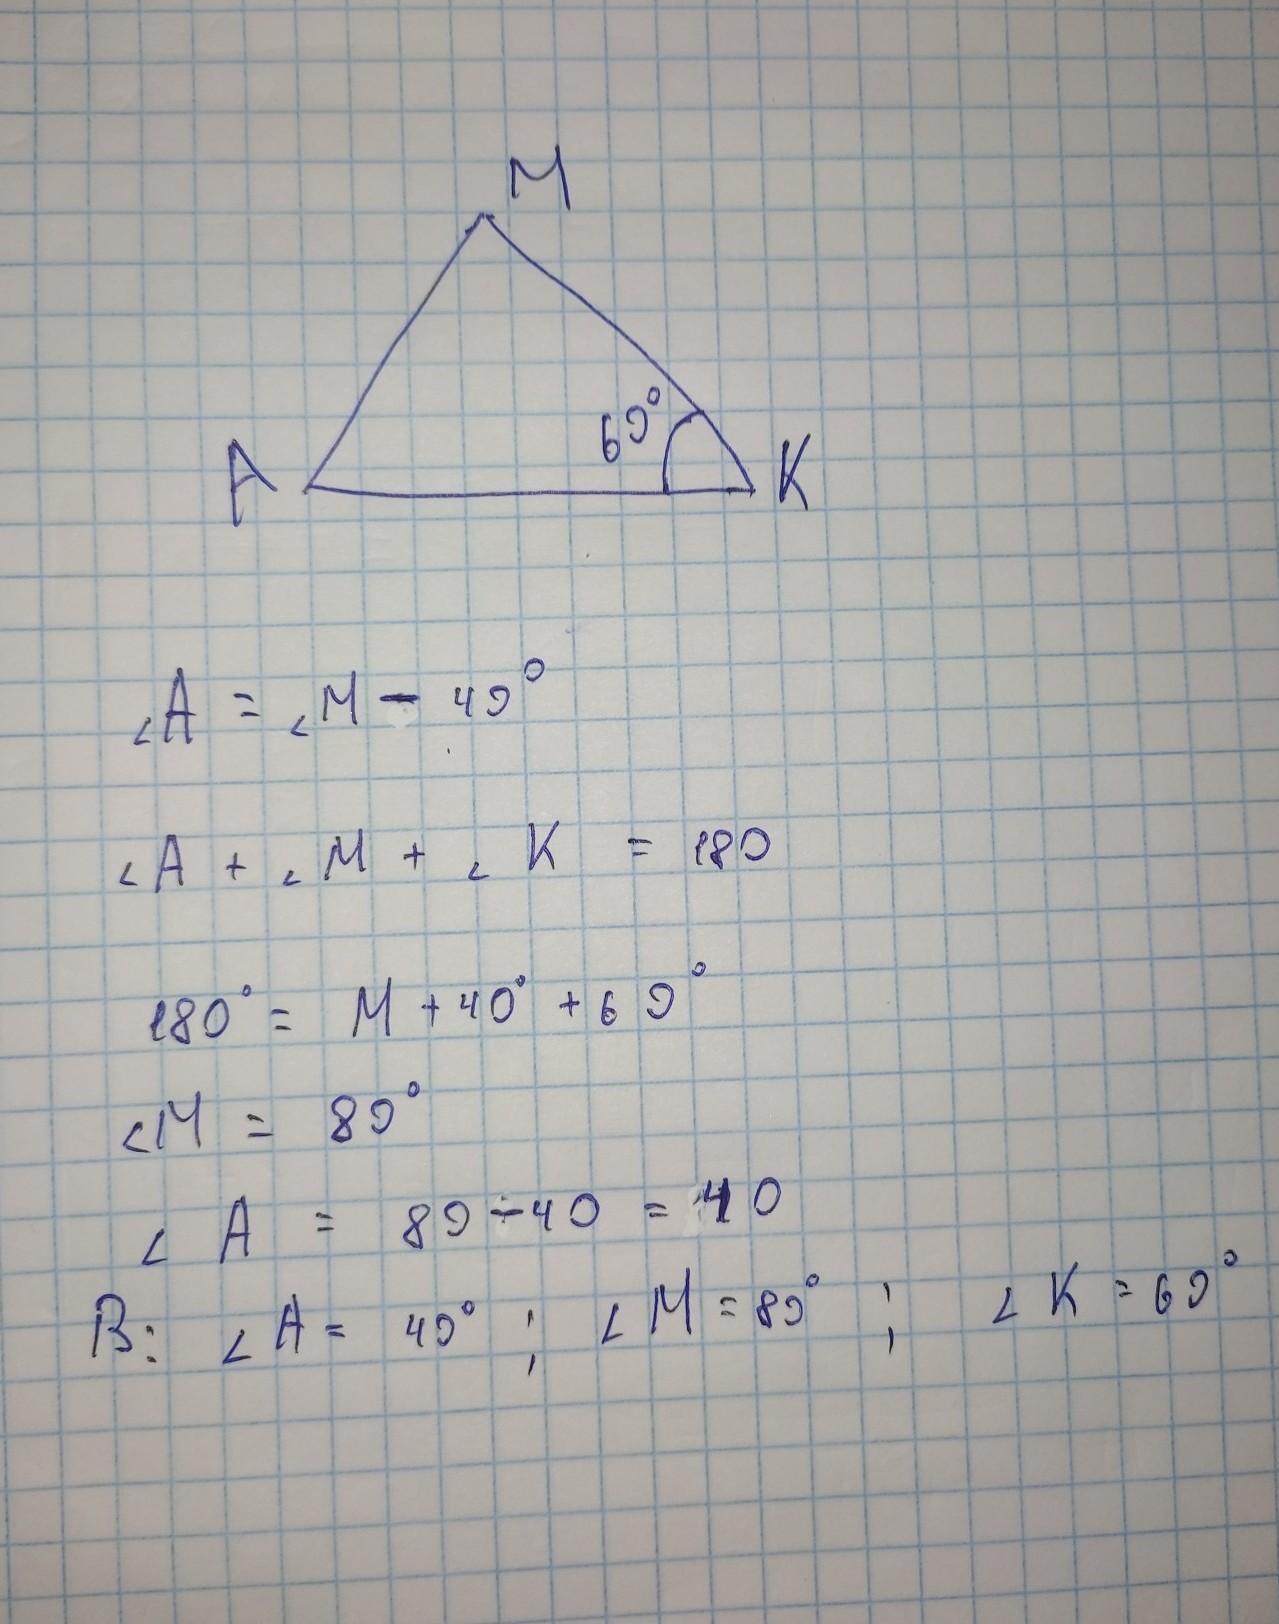 M
60°
A
K
∠A = ∠M - 40°
∠A + ∠M + ∠K = 180
180° = M + 40° + 60°
∠M = 80°
∠A = 80 - 40 = 40
В: ∠A = 40° ; ∠M = 80° ; ∠K = 60°